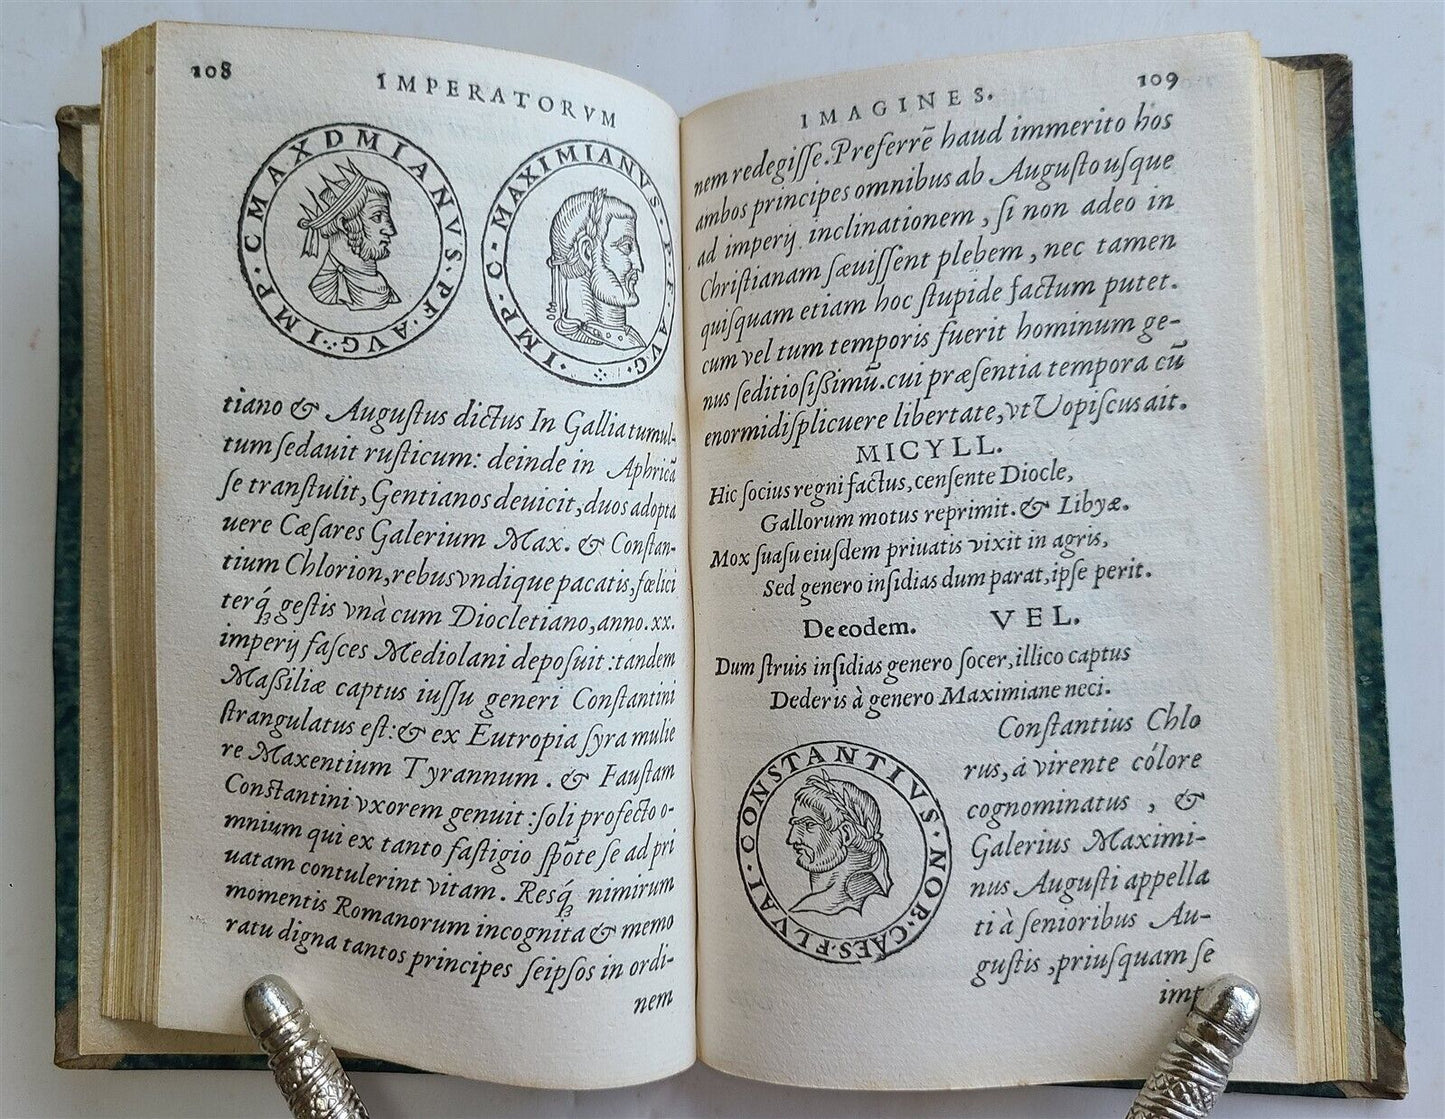 108
IMPERATORVM
IMP·C·MAXDMIANVS·PF·AVG
IMP·C·MAXIMIANVS·P·F·AVG·
tiano & Auguſtus dictus In Gallia tumul-
tum ſedauit ruſticum: deinde in Aphricā
ſe tranſtulit, Gentianos deuicit, duos adopta
uere Cæſares Galerium Max. & Conſtan-
tium Chlorion, rebus vndique pacatis, fœlici
terq́; geſtis vnà cum Diocletiano, anno. xx.
imperij faſces Mediolani depoſuit: tandem
Maßiliæ captus iuſſu generi Conſtantini
ſtrangulatus eſt: & ex Eutropia ſyra mulie
re Maxentium Tyrannum. & Fauſtam
Conſtantini vxorem genuit: ſoli profecto o-
mnium qui ex tanto faſtigio ſpōte ſe ad pri
uatam contulerint vitam. Resq́; nimirum
momentis Romanorum incognita & memo
ratu digna tantos principes ſeipſos in ordi-
nem
IMAGINES.
109
nem redegiſſe. Preferrē haud immerito hos
ambos principes omnibus ab Auguſto uſque
ad imperij inclinationem, ſi non adeo in
Chriſtianam ſæuiſſent plebem, nec tamen
quiſquam etiam hoc ſtupide factum putet.
cum vel tum temporis fuerit hominum ge-
nus ſeditioſißimū. cui præſentia tempora cū
enormi diſplicuere libertate, vt Uopiſcus ait.
MICYLL.
Hic ſocius regni factus, cenſente Diocle,
Gallorum motus reprimit. & Libyæ.
Mox ſuaſu eiuſdem priuatis vixit in agris,
Sed genero inſidias dum parat, ipſe perit.
De eodem. VEL.
Dum ſtruis inſidias genero ſocer, illico captus
Dederis à genero Maximiane neci.
FL VAI·CONSTANTIVS·NOB·CAES·
Conſtantius Chlo
rus, á virente cólore
cognominatus, &
Galerius Maximi-
nus Auguſti appella
ti à ſenioribus Au-
guſtis, priuſquam ſe